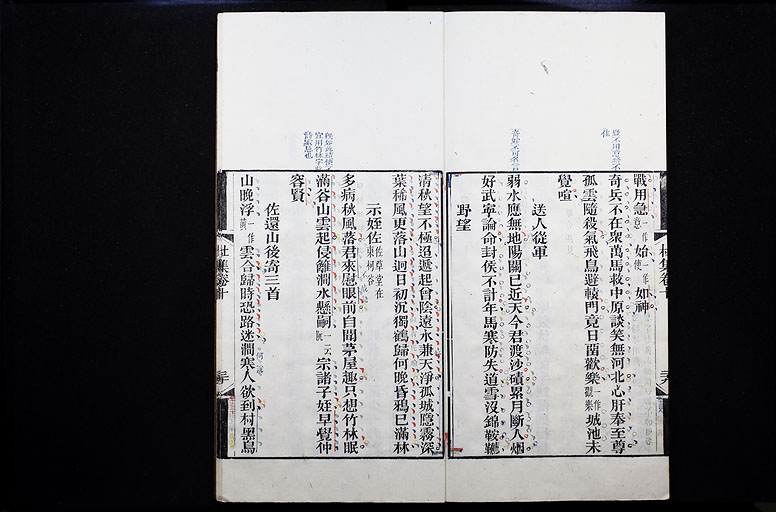 戰用急一作意始一作使如神
奇兵不在衆萬馬救中原談笑無河北心肝奉至尊
孤雲隨殺氣飛鳥避轅門竟日留歡樂一作觀樂城池未
覺喧
送人從軍
弱水應無地陽關已近天今君渡沙磧累月斷人烟
好武寧論命封侯不計年馬寒防失道雪沒錦鞍韉
野望
清秋望不極迢遞起曾陰遠水兼天淨孤城隱霧深
葉稀風更落山迥日初沉獨鶴歸何晚昏鴉已滿林
示姪佐佐草堂在東柯谷
多病秋風落君來慰眼前自聞茅屋趣只想竹林眠
滿谷山雲起侵籬澗水懸嗣宗諸子姪早覺仲
容賢
佐還山後寄三首
山晚浮一作黃雲合歸時恐路迷澗寒人欲到村黑鳥
杜集卷十
杜集卷十